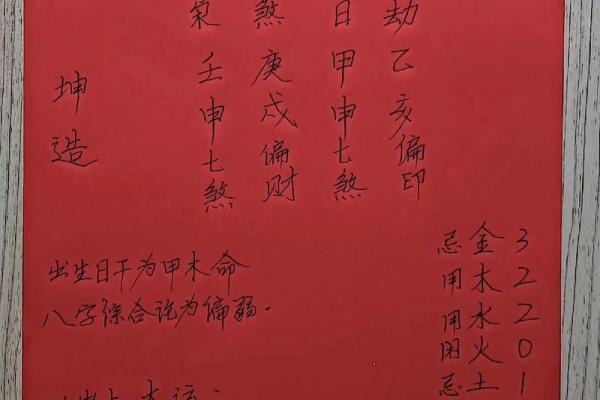 坤造
枭壬申七煞
煞庚戌偏财
日甲申七煞
劫乙亥偏印
出生日干为甲木命
八字综合论为偏弱。
忌金3
用木2
用水2
闲火0
忌土1
大运：